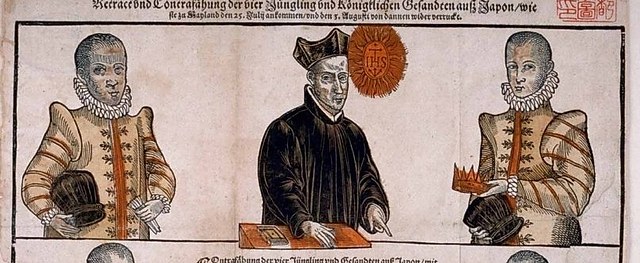 vnd Contrafähung der vier Jüngling vnd Königklichen Gesandten auß Japon/wie
sie zu Mayland den 25. Julij ankommen/vnd den 3. Augusti von dannen wider verruckt.
IHS
der vier Jüngling vnd Gesandten auß Japon/mit